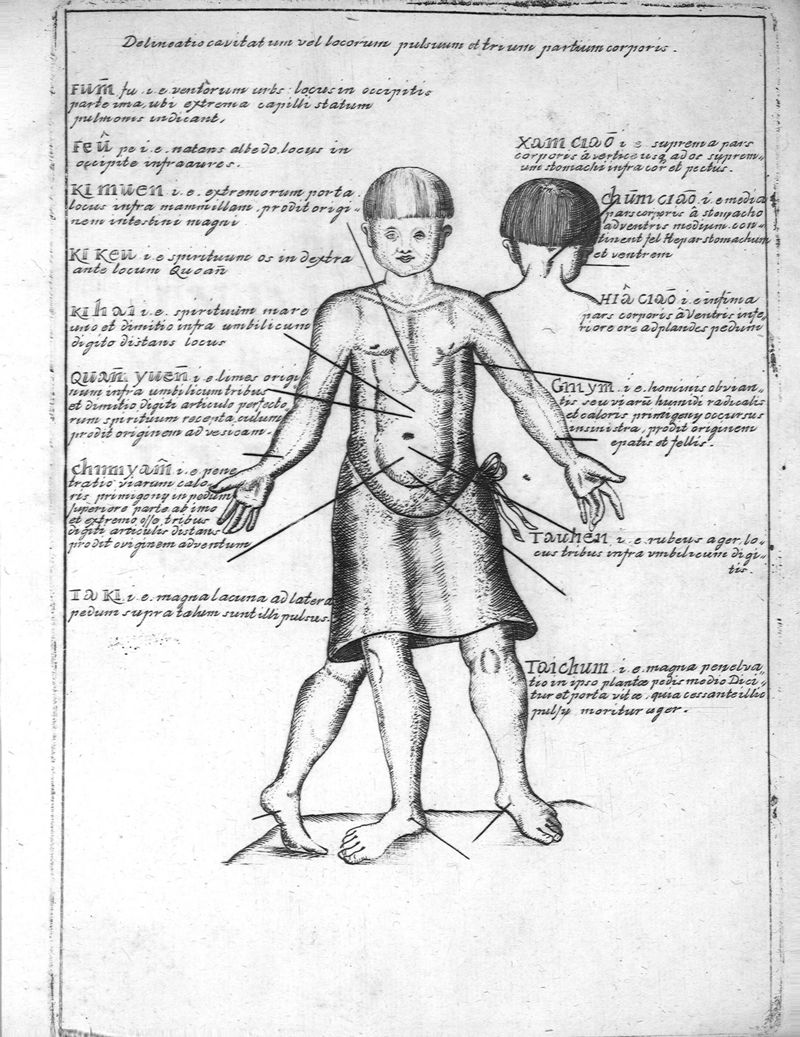 Delineatio cavitatum vel locorum pulsuum et trium partium corporis.
FUM̄ fu .i.e. ventorum urbs: locus in occipitis
parte ima, ubi extrema capilli statum
pulmonis indicant.
FEÛ pe i.e. natans albedo. locus in
occipite infra aures.
KI MUEN i.e. extremorum porta.
locus infra mammillam, prodit origi-
nem intestini magni
KI KEU i.e. spirituum os in dextra
ante locum Quoan̄
KI hai i.e. spirituum mare
uno et dimitio infra umbilicum
digito distans locus
QUAN̄ YUEN̄ i.e. limes origi
num infra umbilicum tribus
et dimitio digiti articulo perfecto,
rum spirituum receptaculum
prodit originem ad vesicam.
Chumyam̄ i.e. pene
tratio viarum calo
ris primigony in pedum
superiore parte ab imo
et extremo osso tribus
digiti articulis distans
prodit originem ad ventum
TA KI .i.e. magna lacuna ad latera
pedum supra talum sunt illi pulsus.
XAM CIAŌ i e. suprema pars
corporis à vertice usq, ad os suprem-
um stomachi infra cor et pectus.
Chūm CIAŌ .i.e media
pars corporis à stomacho
ad ventris medium con-
tinent fel Hepar stomachum
et ventrem
HIÂ CIAŌ i e infima
pars corporis à ventris infe,
riore ore ad plandes pedum
Gniym. i.e. hominis obvian-
tis seu viarū humidi radicalis
et caloris primigeny occursus
in sinistra, prodit originem
epatis et fellis.
Tauhen i.e. rubeus ager. lo-
cus tribus infra vmbilicum digi-
tis.
Taichum .i.e. magna penelva
tio in ipso plantæ pedis medio Dici-
tur et porta vitæ, quia cessante illio
pulsu moritur æger.